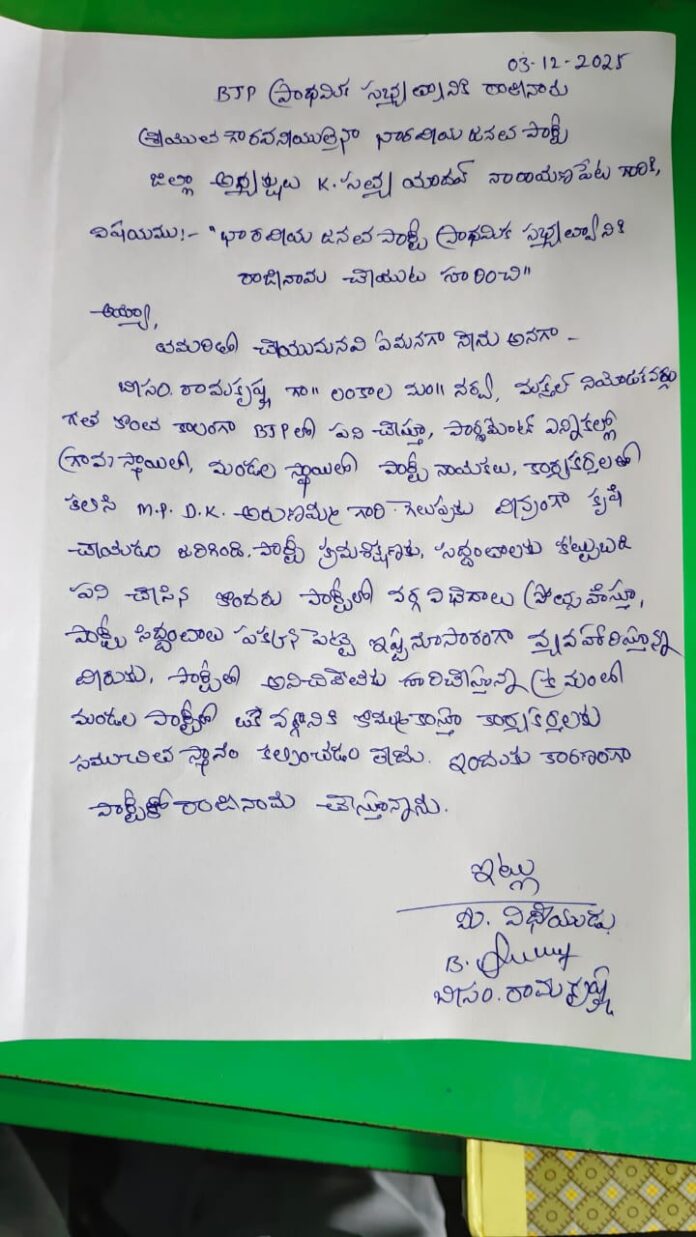 03-12-2025
BJP ప్రాథమిక సభ్యత్వానికి రాజీనామ
శ్రీయుత గౌరవనీయులైన భారతీయ జనత పార్టీ
జిల్లా అధ్యక్షులు K. సత్య యాదవ్ నారాయణపేట గారికి,
విషయము:- "భారతీయ జనత పార్టీ ప్రాథమిక సభ్యత్వానికి
రాజీనామ చేయుట గూరించి"
అయ్యా,
తమరితో చేయుమనవి ఏమనగా నేను అనగా -
బీసం. రామకృష్ణ గ్రా॥ లంకాల మం॥ నర్వ, మక్తల్ నియోజకవర్గం
గత కొంత కాలంగా BJP లో పని చేస్తూ, పార్లమెంట్ ఎన్నికల్లో
గ్రామ స్థాయిలో, మండల స్థాయిలో పార్టీ నాయకులు, కార్యకర్తలతో
కలిసి M.P. D.K. అరుణమ్మ గారి గెలుపుకు తీవ్రంగా కృషి
చేయడం జరిగింది. పార్టీ క్రమశిక్షణకు, సిద్దంతాలకు కట్టుబడి
పని చేసిన కొందరు పార్టీలో వర్గ విభేదాలు ప్రోత్సహిస్తూ,
పార్టీ సిద్దంతాలు పక్కన పెట్టి ఇష్టానూసారంగా వ్యవహరిస్తున్న
తీరుకు, పార్టీతో అనిచివేతకు గురిచేస్తున్న క్రమంలో
మండల పార్టీలో ఒకే వర్గానికి కొమ్ముకాస్తూ కార్యకర్తలకు
సముచిత స్థానం కల్పించడం లేదు. ఇందుకు కారణంగా
పార్టీకి రాజీనామ చేస్తున్నాను.
ఇట్లు
మీ. విధేయుడు
B.
బీసం. రామకృష్ణ